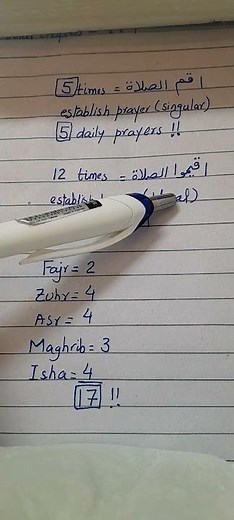 5 times = اقم الصلاة
establish prayer (singular)
5 daily prayers !!
12 times = اقيموا الصلاة
Fajr = 2
Zuhr = 4
Asr = 4
Maghrib = 3
Isha = 4
17 !!